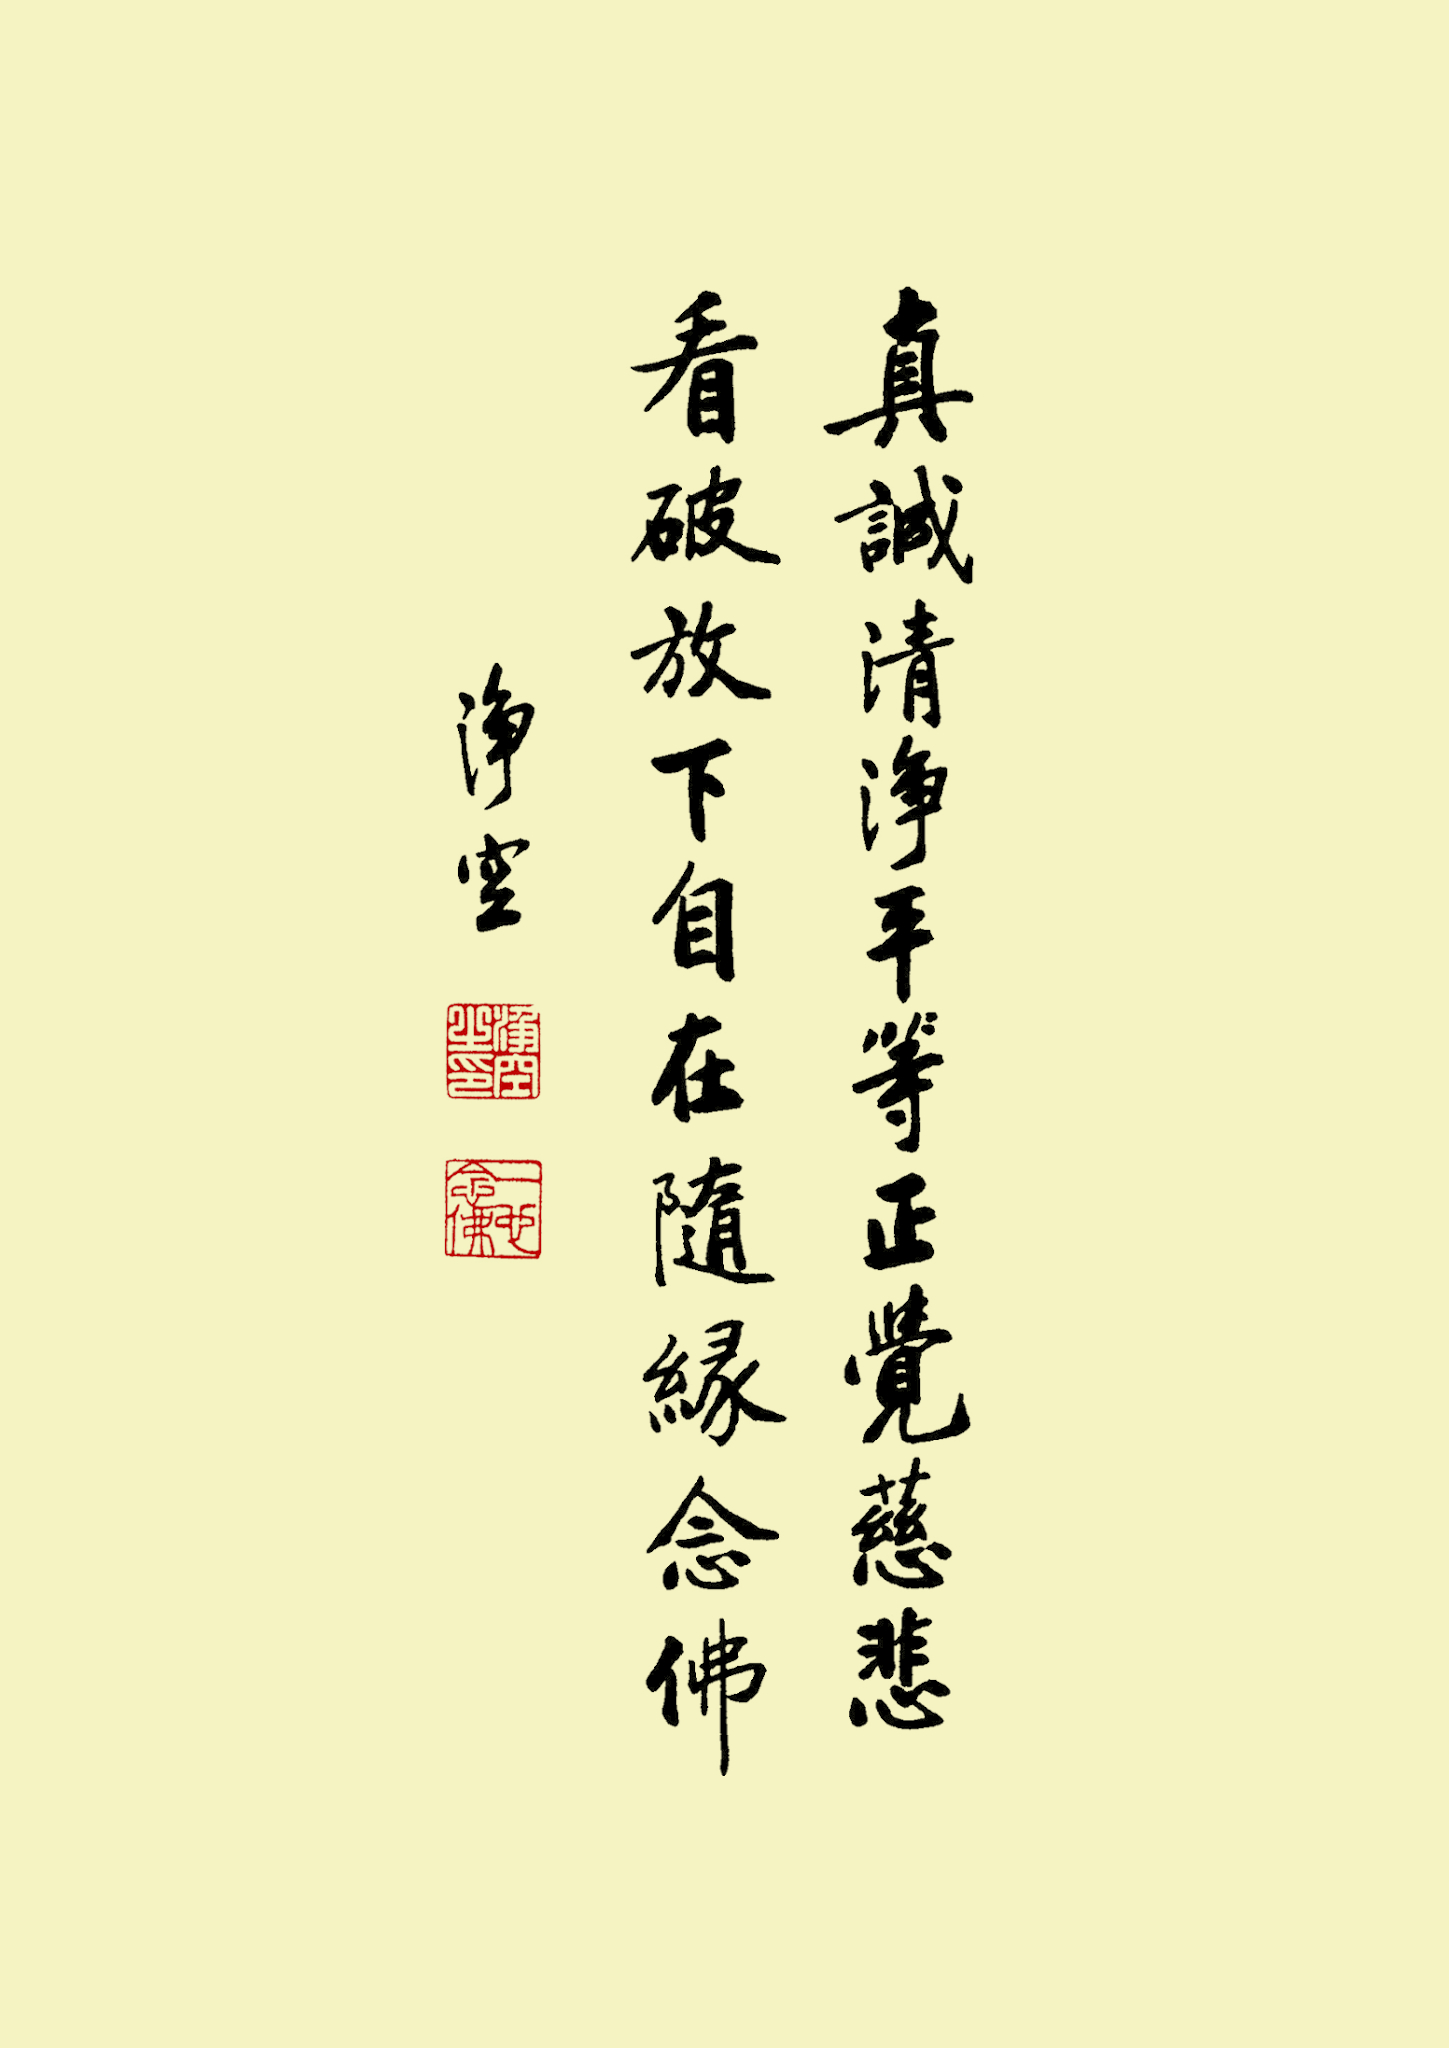 真誠清淨平等正覺慈悲
看破放下自在隨緣念佛
淨空
淨空之印
一心念佛